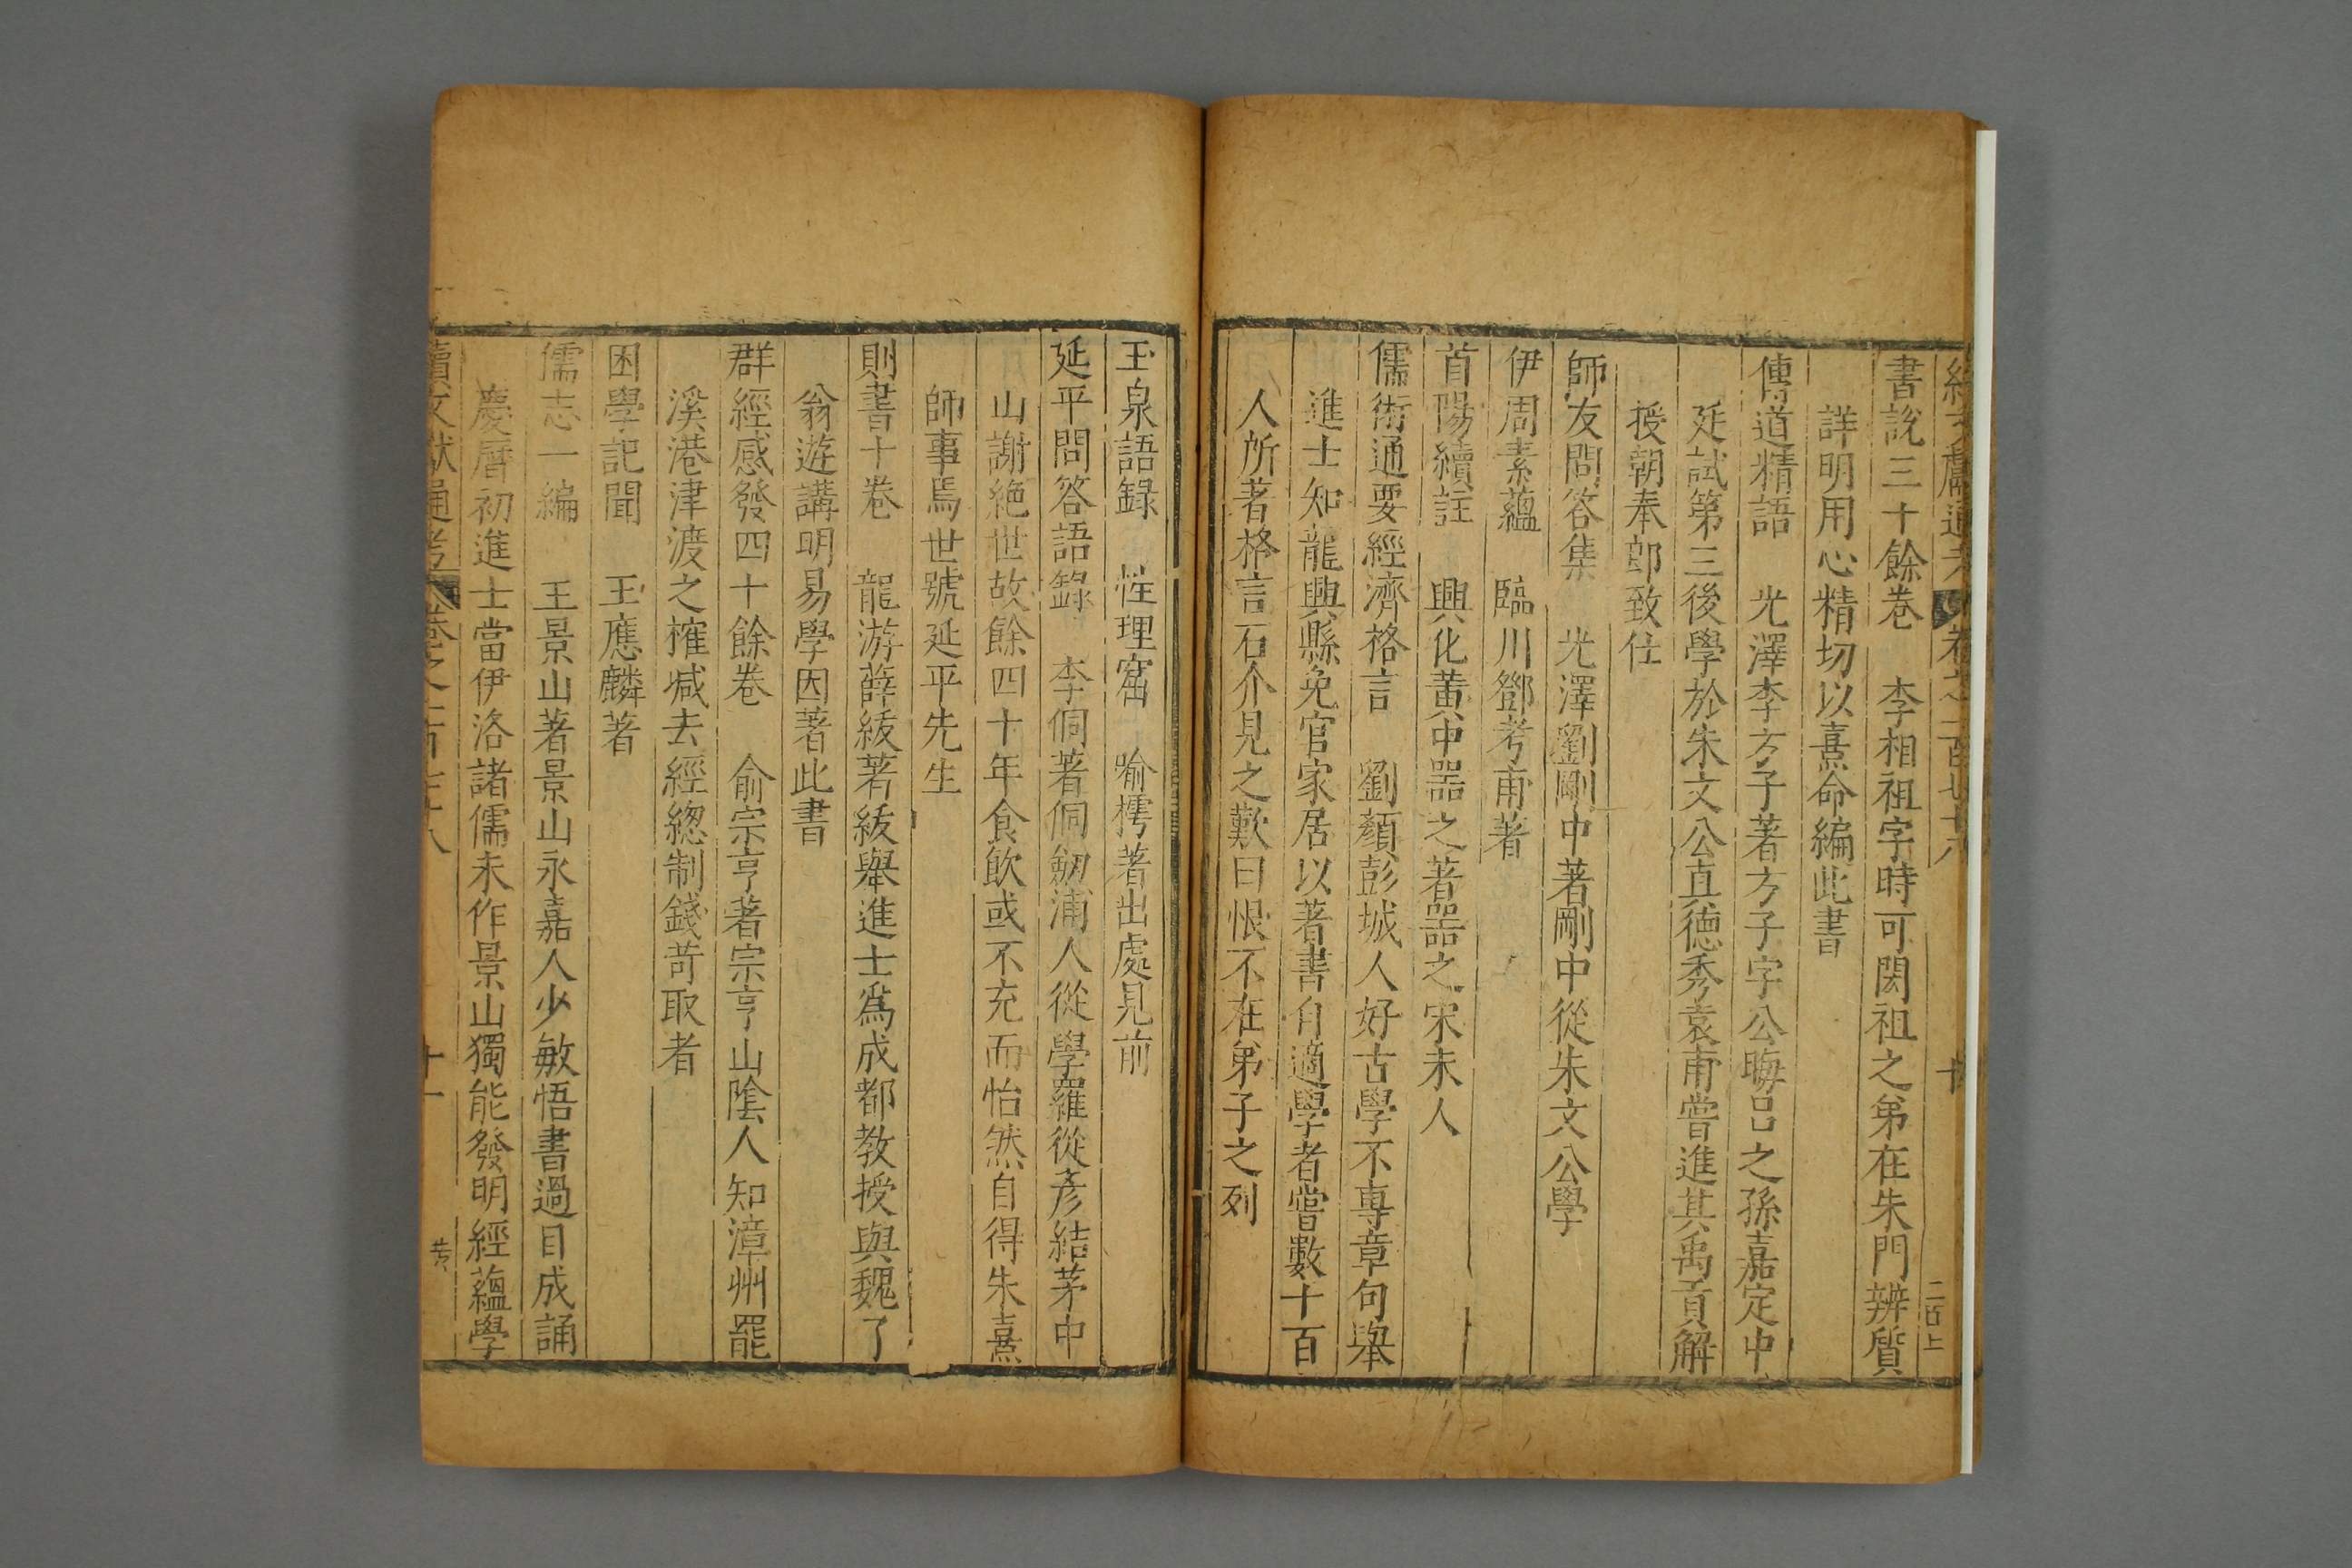 書說三十餘卷　李相祖字時可閎祖之弟在朱門辨質
詳明用心精切以熹命編此書
傳道精語　光澤李方子著方子字公晦呂之孫嘉定中
廷試第三後學於朱文公真德秀袁甫嘗進其禹貢解
授朝奉郎致仕
師友問答集　光澤劉剛中著剛中從朱文公學
伊周素蘊　臨川鄧考甫著
首陽續註　興化黃中器之著器之宋末人
儒術通要經濟格言　劉顏彭城人好古學不專章句舉
進士知龍興縣免官家居以著書自適學者嘗數十百
人所著格言石介見之歎曰恨不在弟子之列
玉泉語錄　性理窟　喻樗著出處見前
延平問答語錄　李侗著侗劒浦人從學羅從彥結茅中
山謝絕世故餘四十年食飲或不充而怡然自得朱熹
師事焉世號延平先生
則書十卷　龍游薛紱著紱舉進士爲成都教授與魏了
翁遊講明易學因著此書
群經感發四十餘卷　俞宗亨著宗亨山陰人知漳州罷
溪港津渡之榷减去經緫制錢苛取者
困學記聞　王應麟著
儒志一編　王景山著景山永嘉人少敏悟書過目成誦
慶曆初進士當伊洛諸儒未作景山獨能發明經蘊學
續文獻通考　卷之一百七十八　十一